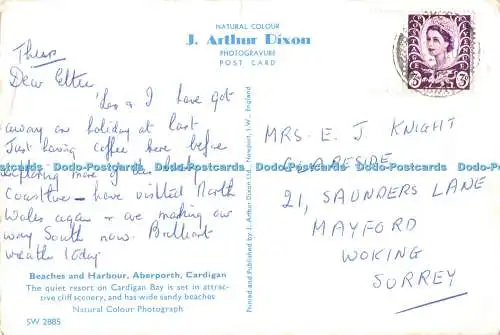 NATURAL COLOUR
J. Arthur Dixon
PHOTOGRAVURE
POST CARD
Thurs
Dear
I have got
away on holiday at last
Just having coffee here before
exploring more of this lovely
Coastline - have visited North
Wales again & are making our
way South now. Brilliant
weather today.
Beaches and Harbour, Aberporth, Cardigan
The quiet resort on Cardigan Bay is set in attrac-
tive cliff scenery, and has wide sandy beaches
Natural Colour Photograph
SW 2885
Printed and published by J. Arthur Dixon Ltd., Newport, I.W., England
3D
MRS. E. J. KNIGHT
21, SAUNDERS LANE
MAYFORD
WOKING
SURREY
Dodo-Postcards Dodo-Postcards Dodo-Postcards Dodo-Postcards Dodo-Postcards Dodo-Postcards